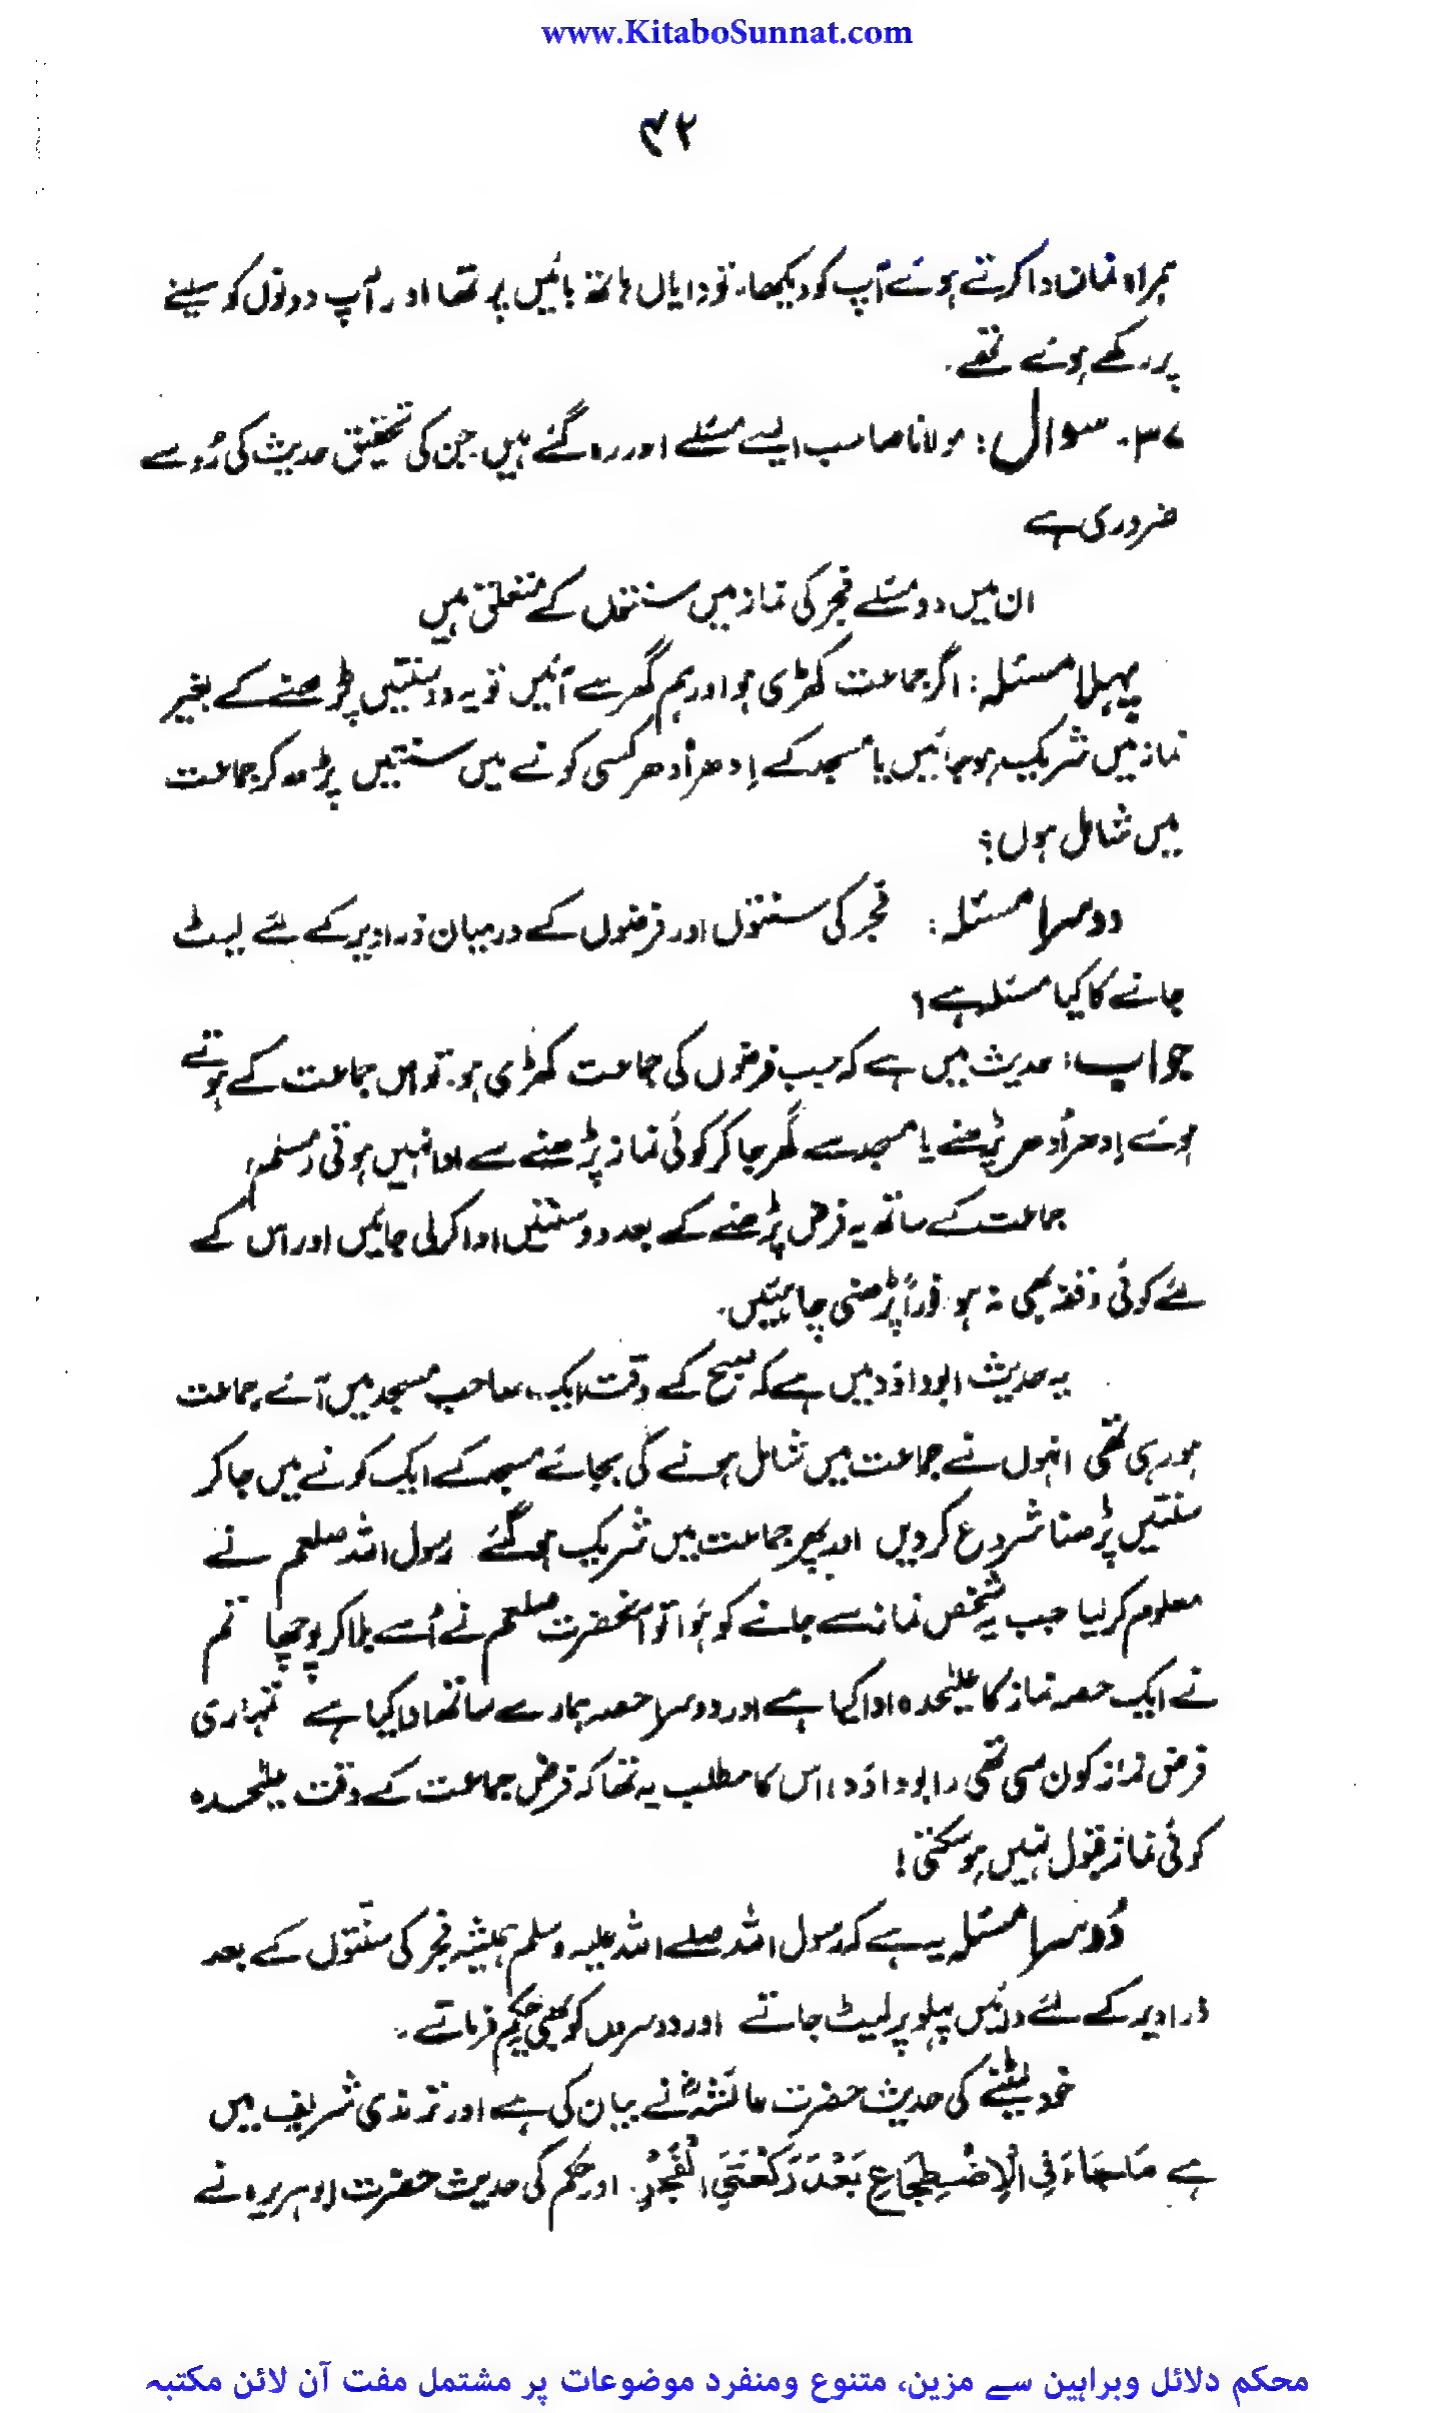 www.KitaboSunnat.com
۴۲
ہمراہ نماز ادا کرتے ہوئے آپ کو دیکھا۔ تو دایاں ہاتھ بائیں پر تھا اور آپ دونوں کو سینے
پر رکھے ہوئے تھے۔
۳۷۔ سوال: مولانا صاحب ایسے مسئلے اور رہ گئے ہیں جن کی تحقیق حدیث کی رُو سے
ضروری ہے
ان میں دو مسئلے فجر کی نماز میں سنتوں کے متعلق ہیں
پہلا مسئلہ: اگر جماعت کھڑی ہو اور ہم گھر سے آئیں تو یہ دو سنتیں پڑھنے کے بغیر
نماز میں شریک ہو جائیں یا مسجد کے اِدھر اُدھر کسی کونے میں سنتیں پڑھ کر جماعت
میں شامل ہوں؟
دوسرا مسئلہ: فجر کی سنتوں اور فرضوں کے درمیان ذرا دیر کے لئے لیٹ
جانے کا کیا مسئلہ ہے؟
جواب: حدیث میں ہے کہ جب فرضوں کی جماعت کھڑی ہو۔ تو اس جماعت کے ہوتے
ہوئے اِدھر اُدھر پڑھنے یا مسجد سے گھر جا کر کوئی نماز پڑھنے سے ادا نہیں ہوتی (مسلم)
جماعت کے ساتھ یہ فرض پڑھنے کے بعد دو سنتیں ادا کر لی جائیں اور اس کے
لئے کوئی وقفہ بھی نہ ہو فوراً پڑھنی چاہئیں۔
یہ حدیث ابوداؤد میں ہے کہ صبح کے وقت ایک صاحب مسجد میں آئے جماعت
ہو رہی تھی انہوں نے جماعت میں شامل ہونے کی بجائے مسجد کے ایک کونے میں جا کر
سنتیں پڑھنا شروع کر دیں اور پھر جماعت میں شریک ہو گئے رسول اللہ صلعم نے
معلوم کر لیا جب یہ شخص نماز سے جانے کو ہوا تو آنحضرت صلعم نے اُسے بلا کر پوچھا تم
نے ایک حصہ نماز کا علیٰحدہ ادا کیا ہے اور دوسرا حصہ ہمارے ساتھ ادا کیا ہے تمہاری
فرض نماز کون سی تھی (ابوداؤد) اس کا مطلب یہ تھا کہ فرض جماعت کے وقت علیٰحدہ
کوئی نماز قبول نہیں ہو سکتی!
دُوسرا مسئلہ یہ ہے کہ رسول اللہ صلے اللہ علیہ وسلم ہمیشہ فجر کی سنتوں کے بعد
ذرا دیر کے لئے دائیں پہلو پر لیٹ جاتے اور دوسروں کو بھی حکم فرماتے۔
خود لیٹنے کی حدیث حضرت عائشہؓ نے بیان کی ہے اور ترمذی شریف میں
ہے مَا جَاءَ فِی الْاِضْطِجَاعِ بَعْدَ رَکْعَتَیِ الْفَجْرِ۔ اور حکم کی حدیث حضرت ابوہریرہ نے
محکم دلائل وبراہین سے مزین، متنوع ومنفرد موضوعات پر مشتمل مفت آن لائن مکتبہ